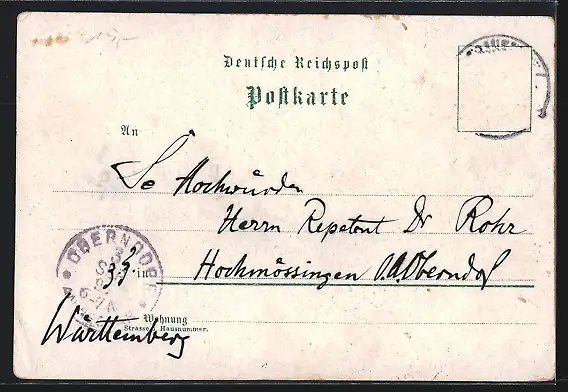 Deutsche Reichspost
Postkarte
An
Se Hochwürden
Herrn Repetent Dr Rohr
in Hochmössingen O.A. Oberndorf
OBERNDORF
Wohnung
Strasse u. Hausnummer.
Württemberg